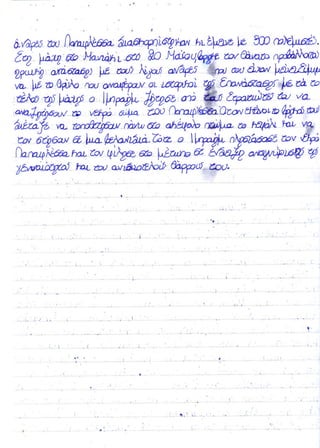 άνδρες του Παπαφλέσσα διασκορπίστηκαν κι έμεινε με 300 πολεμιστές.
Στη μάχη στο Μανιάκι στο 20 Μαΐου βρήκε τον θάνατο προβάλλοντας
ηρωική αντίσταση με τους λίγους άνδρες που του είχαν μείνει. Σύμφωνα
να με το θρύλο που αναφέρουν οι ιστορικοί της Επανάστασης με τα το
τέλος της μάχης ο Ιμπραήμ ζήτησε από τους Στρατιώτες του να
αναζητήσουν το νεκρό σώμα του Παπαφλέσσα. Όταν έπεισε το βρήκαν τους
διέταξε να τοποθετήσουν πάνω στο ακέφαλο πτώμα το κεφάλι και να
τον στήσουν σε μια βελανιδιά. Τότε ο Ιμπραήμ πλησίασε τον νεκρό
Παπαφλέσσα και τον φίλησε στο μέτωπο σε ένδειξη αναγνώρισης της
γενναιότητας και του ανυπότακτου θάρρους του.